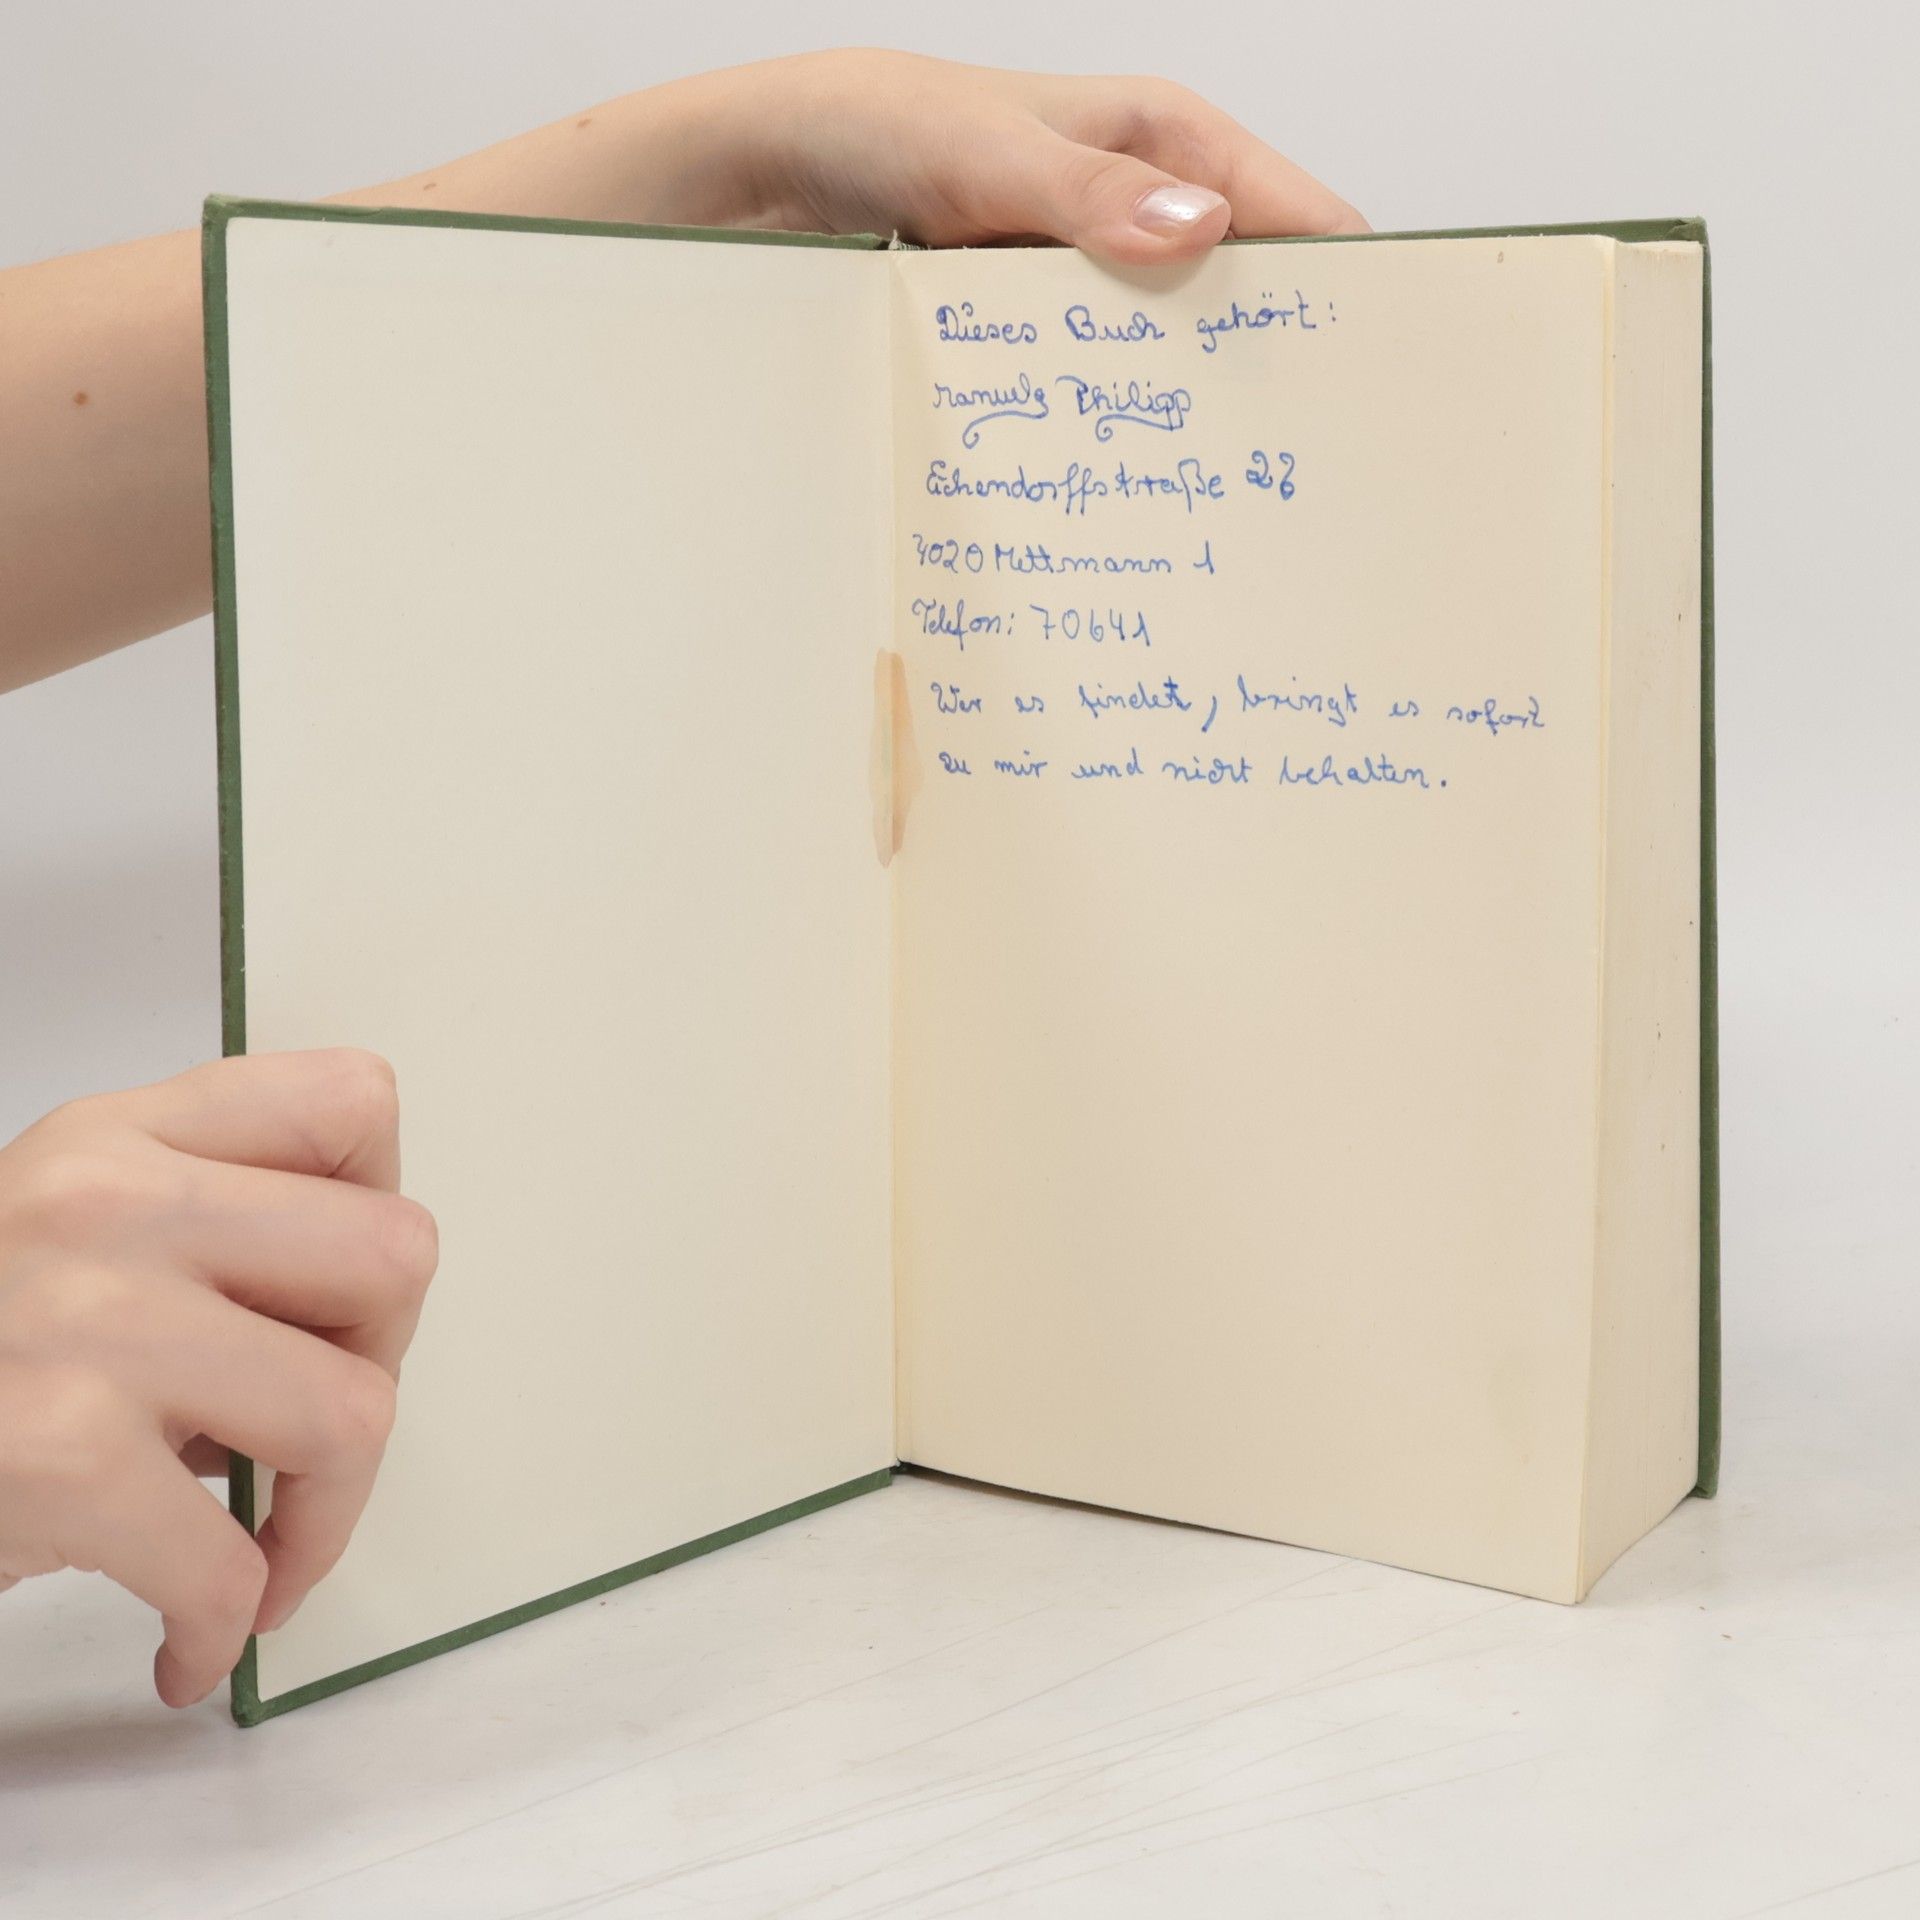 Dieses Buch gehört:
Manuela Philipp
Eichendorffstraße
4020 Mettmann 1
Telefon: 70641
Wer es findet, bringt es sofort
zu mir und nicht behalten.